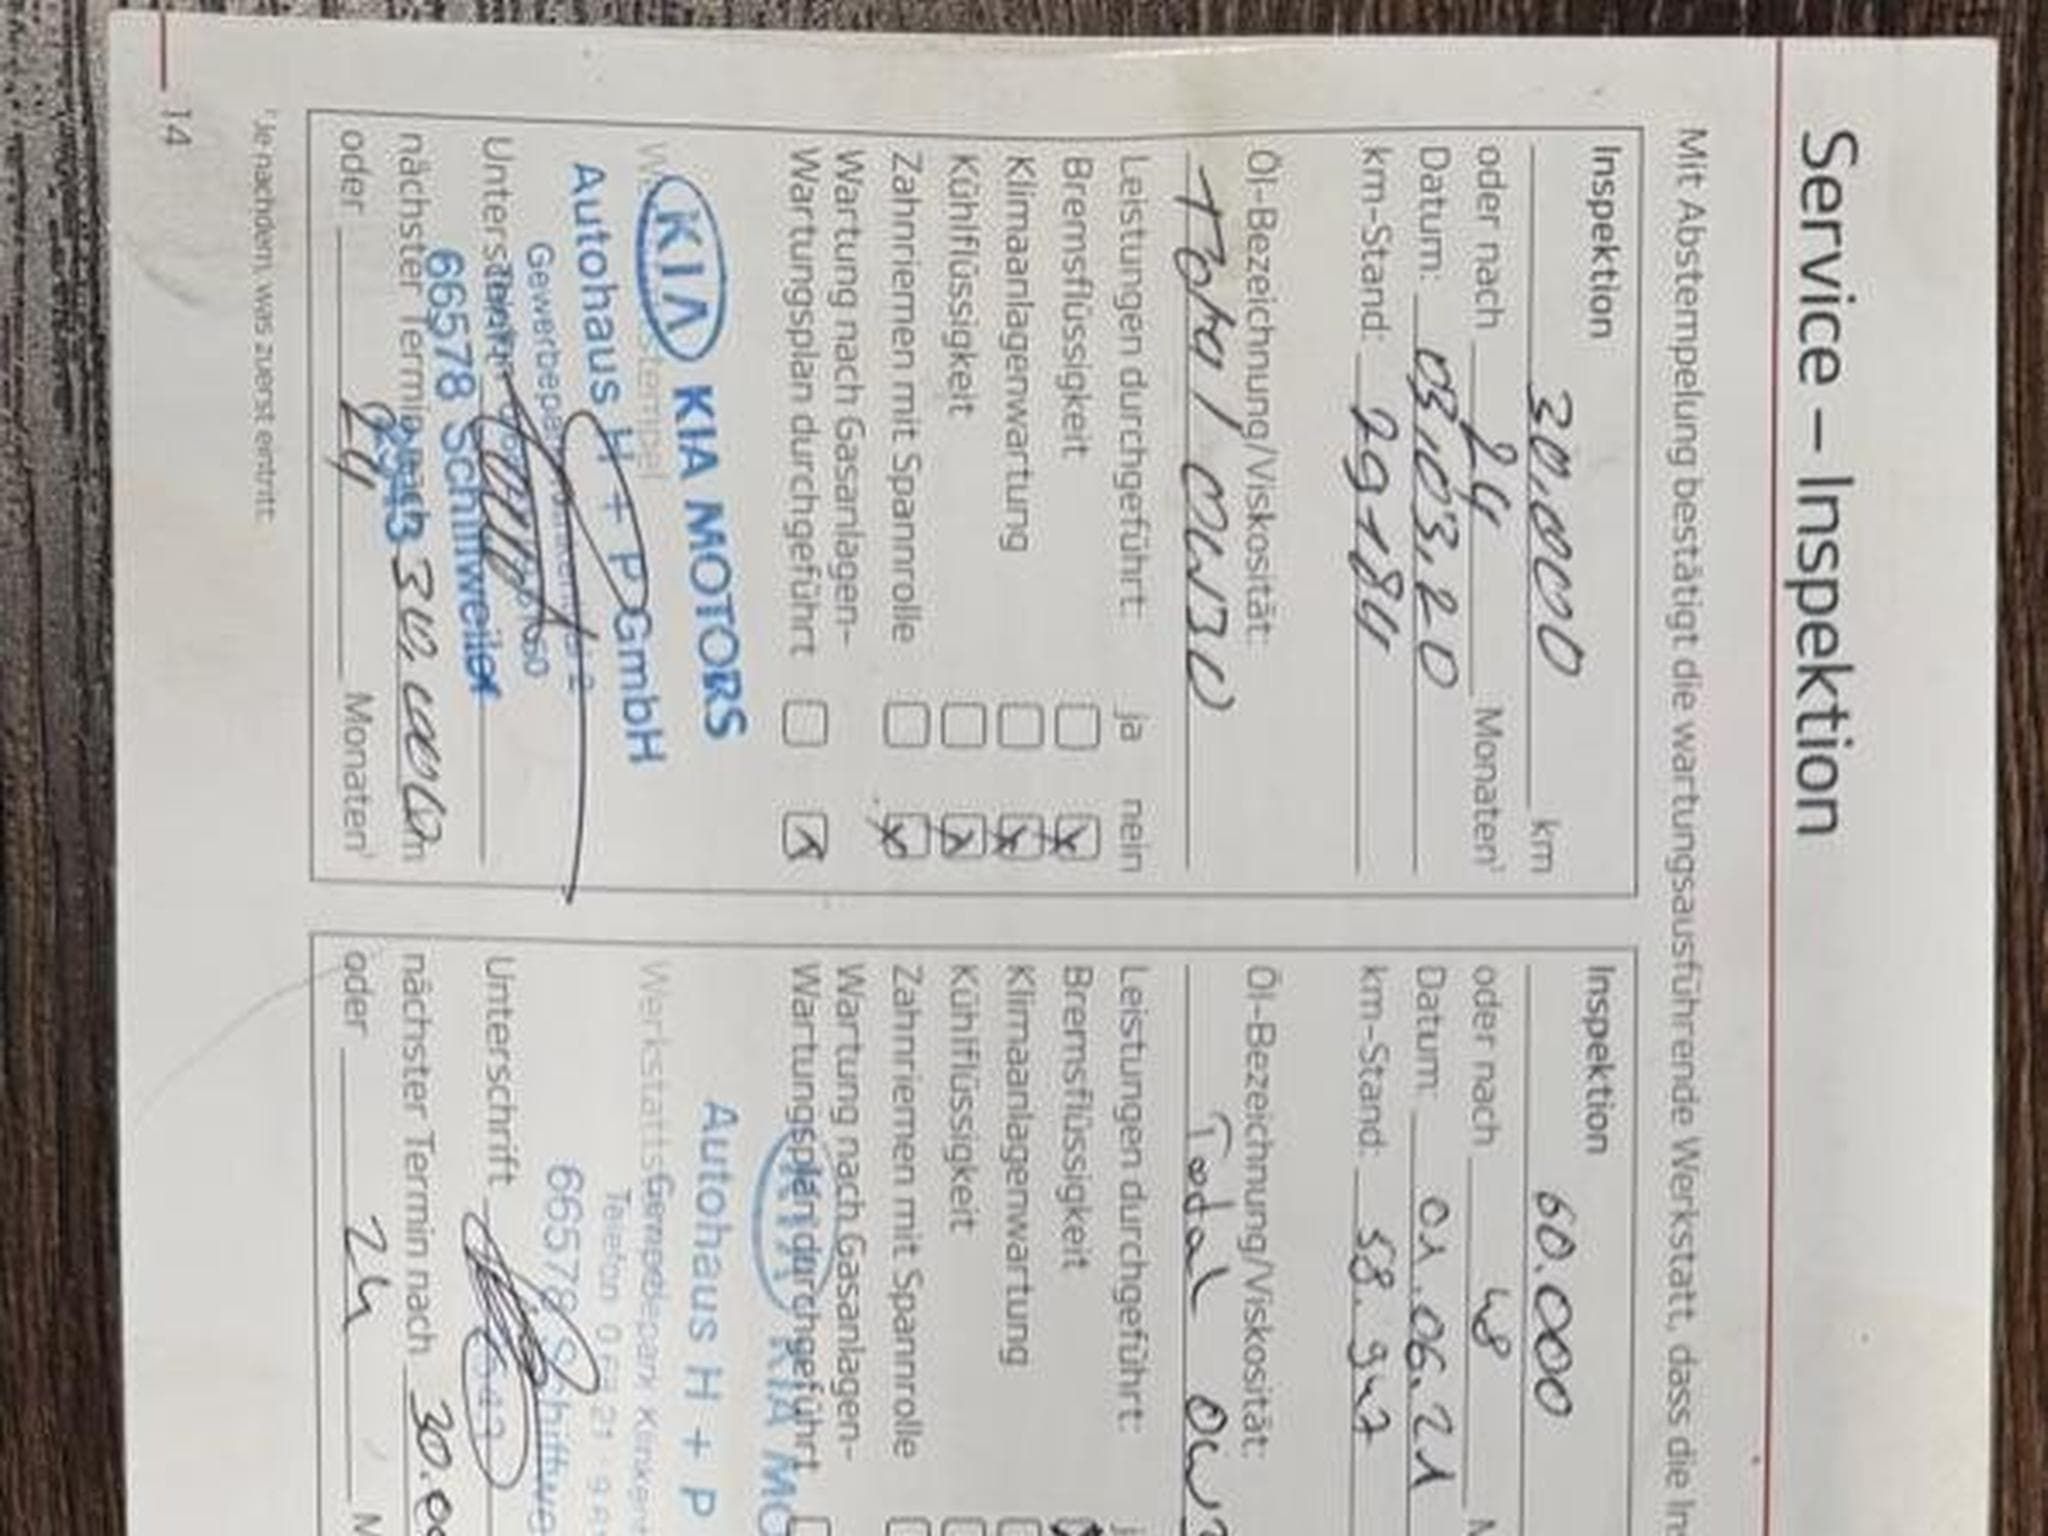 Service – Inspektion
Mit Abstempelung bestätigt die wartungsausführende Werkstatt, dass die
Inspektion
30.000 km
oder nach 24 Monaten¹
Datum: 03.03.20
km-Stand: 29184
Öl-Bezeichnung/Viskosität:
Total 0W30
Leistungen durchgeführt: ja nein
Bremsflüssigkeit
Klimaanlagenwartung
Kühlflüssigkeit
Zahnriemen mit Spannrolle
Wartung nach Gasanlagen-
Wartungsplan durchgeführt
KIA KIA MOTORS
Autohaus H + P GmbH
66578 Schiffweiler
nächster Termin nach 30.000 km
oder 24 Monaten¹
¹Je nachdem, was zuerst eintritt.
14
Inspektion
60.000
oder nach 48
Datum: 01.06.21
km-Stand: 58.947
Öl-Bezeichnung/Viskosität:
Total
Leistungen durchgeführt:
Bremsflüssigkeit
Klimaanlagenwartung
Kühlflüssigkeit
Zahnriemen mit Spannrolle
Wartung nach Gasanlagen-
Wartungsplan durchgeführt
KIA KIA
Autohaus H + P
Gewerbepark
Telefon
66578
Unterschrift
nächster Termin nach
oder 24